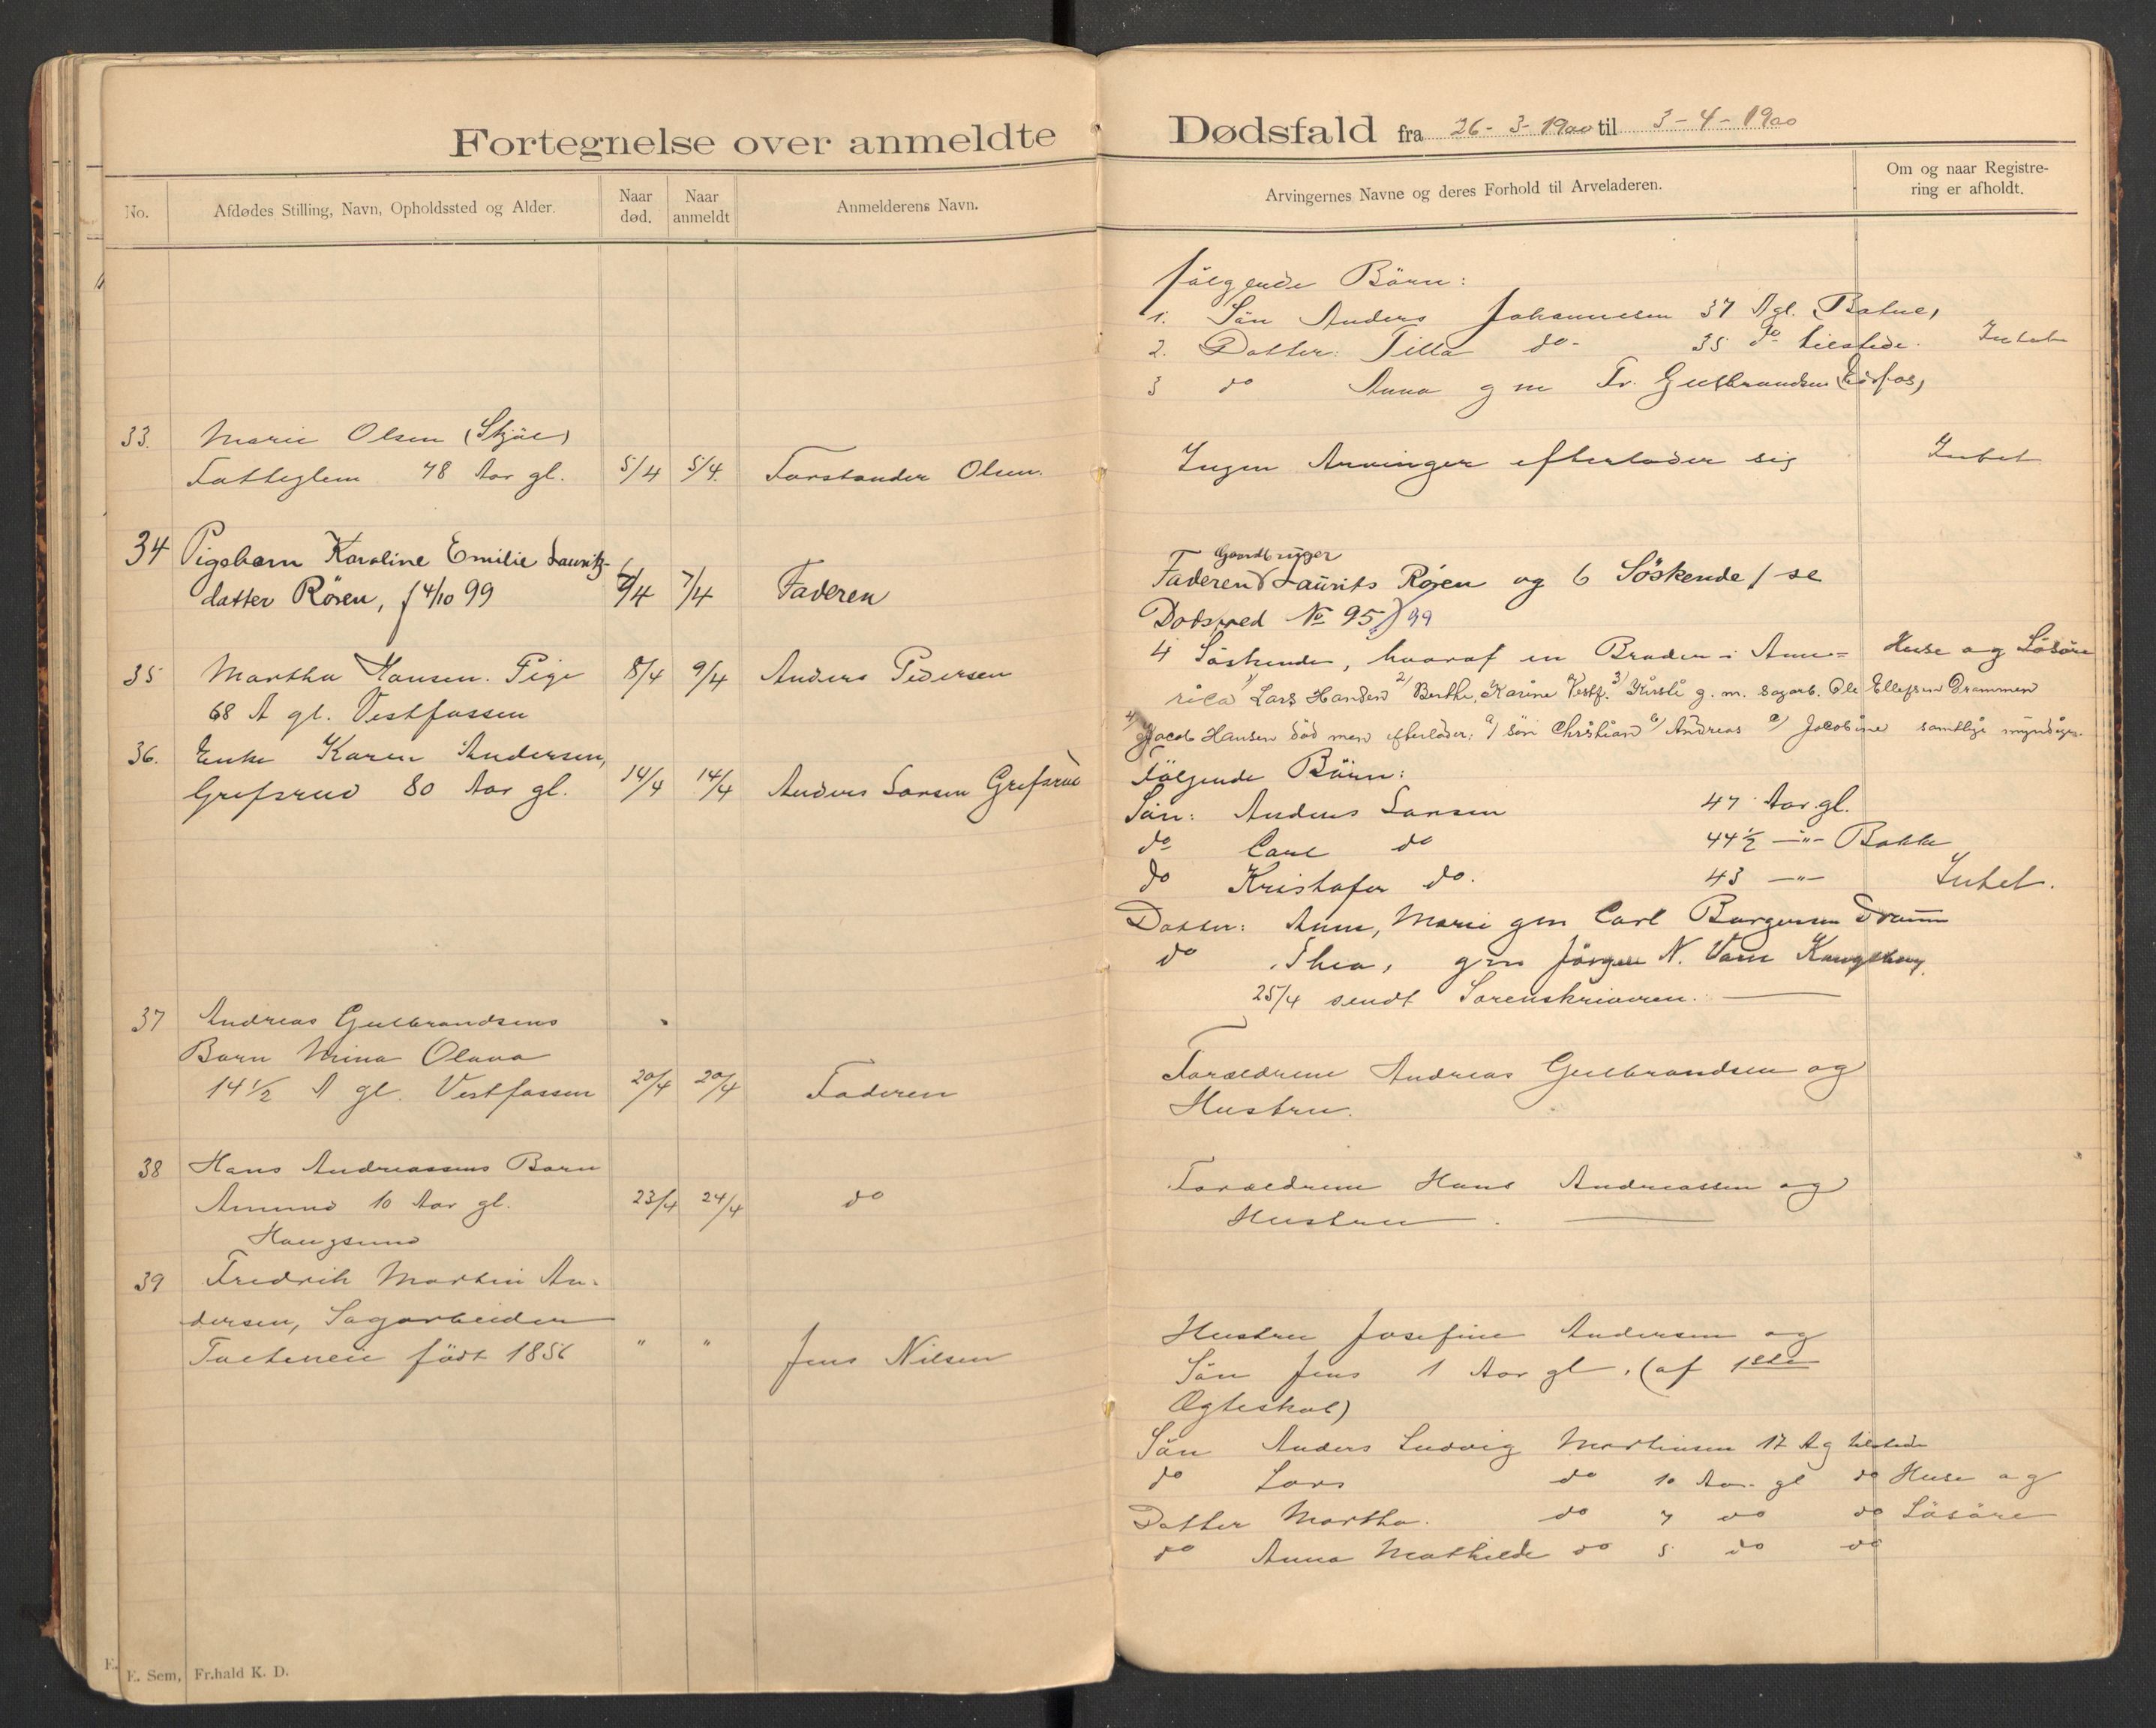 Fortegnelse over anmeldte
No.
Afdødes Stilling, Navn, Opholdssted og Alder.
Naar død.
Naar anmeldt
Anmelderens Navn.
33. Marie Olsen (Skjöl)
Fatteglem 78 Aar gl. 5/4 5/4. Forstander Olsen.
34 Pigebarn Karoline Emilie Laurits-
datter Rösen, f 4/10 99 6/4 7/4 Faderen
35 Martha Hansen. Pige 8/4 9/4 Anders Pedersen
68 A gl. Vestfossen
36. Enke Karen Andersen,
Grefsrud 80 Aar gl. 14/4 14/4 Anders Larsen Grefsrud
37 Andreas Gulbrandsens
Barn Mina Olava
14 1/2 A gl. Vestfossen 20/4 20/4 Faderen
38 Hans Andreassens Barn
Amund 10 Aar gl. 23/4 24/4 do
Haugsund
39 Fredrik Martin An-
dersen, Sagarbeider
födt 1856 " " Jens Nilsen
E. Sem, Fr.hald K. D.
Dødsfald fra 26-3-1900 til 3-4-1900
Arvingernes Navne og deres Forhold til Arveladeren.
Om og naar Registre-
ring er afholdt.
følgende Börn:
1. Sön Anders Johannesen 37 Agl.
2. Datter: Tilla do- 35 do tilstede. Intet
3 do Anna g m Fr. Gulbrandsen
Ingen Arvinger efterlader sig Intet
Gaardbruger
Faderen Laurits Rösen og 6 Söskende / se
Dødsfred No 95/99
4 Söskende, hvoraf en Broder i Ame- Huse og Lösöre
rica 1/ Lars Hansen 2/ Berthe, Karine Vestf. 3/ Kirsti g. m. Sagarb. Ole Ellefsen Drammen
4/ Jacob Hansen död men efterlader: a/ sön Christian b/ Andreas c/ Jacobine samtlige myndige.
Følgende Börn:
Sön: Anders Larsen 47 Aar gl.
do Carl do 44 1/2 -"- Bakke
do Kristofer do. 43 -"- Intet.
Datter: Anne, Marie gm Carl Borgersen Dramm
do Thea, gm Jörgen N. Kongsberg.
25/4 sendt Sorenskriveren.
Forældrene Andreas Gulbrandsen og
Hustru.
Forældrene Hans Andreassen og
Hustru.
Hustru Josefine Andersen og
Sön Jens 1 Aar gl. (af 1ste
Ægteskab)
Sön Anders Ludvig Martinsen 17 Ag tilstede
do Lars do 10 Aar. gl do Huse og
Datter Martha. do 7 do do Lösöre
do Anna Mathilde do 5 do do